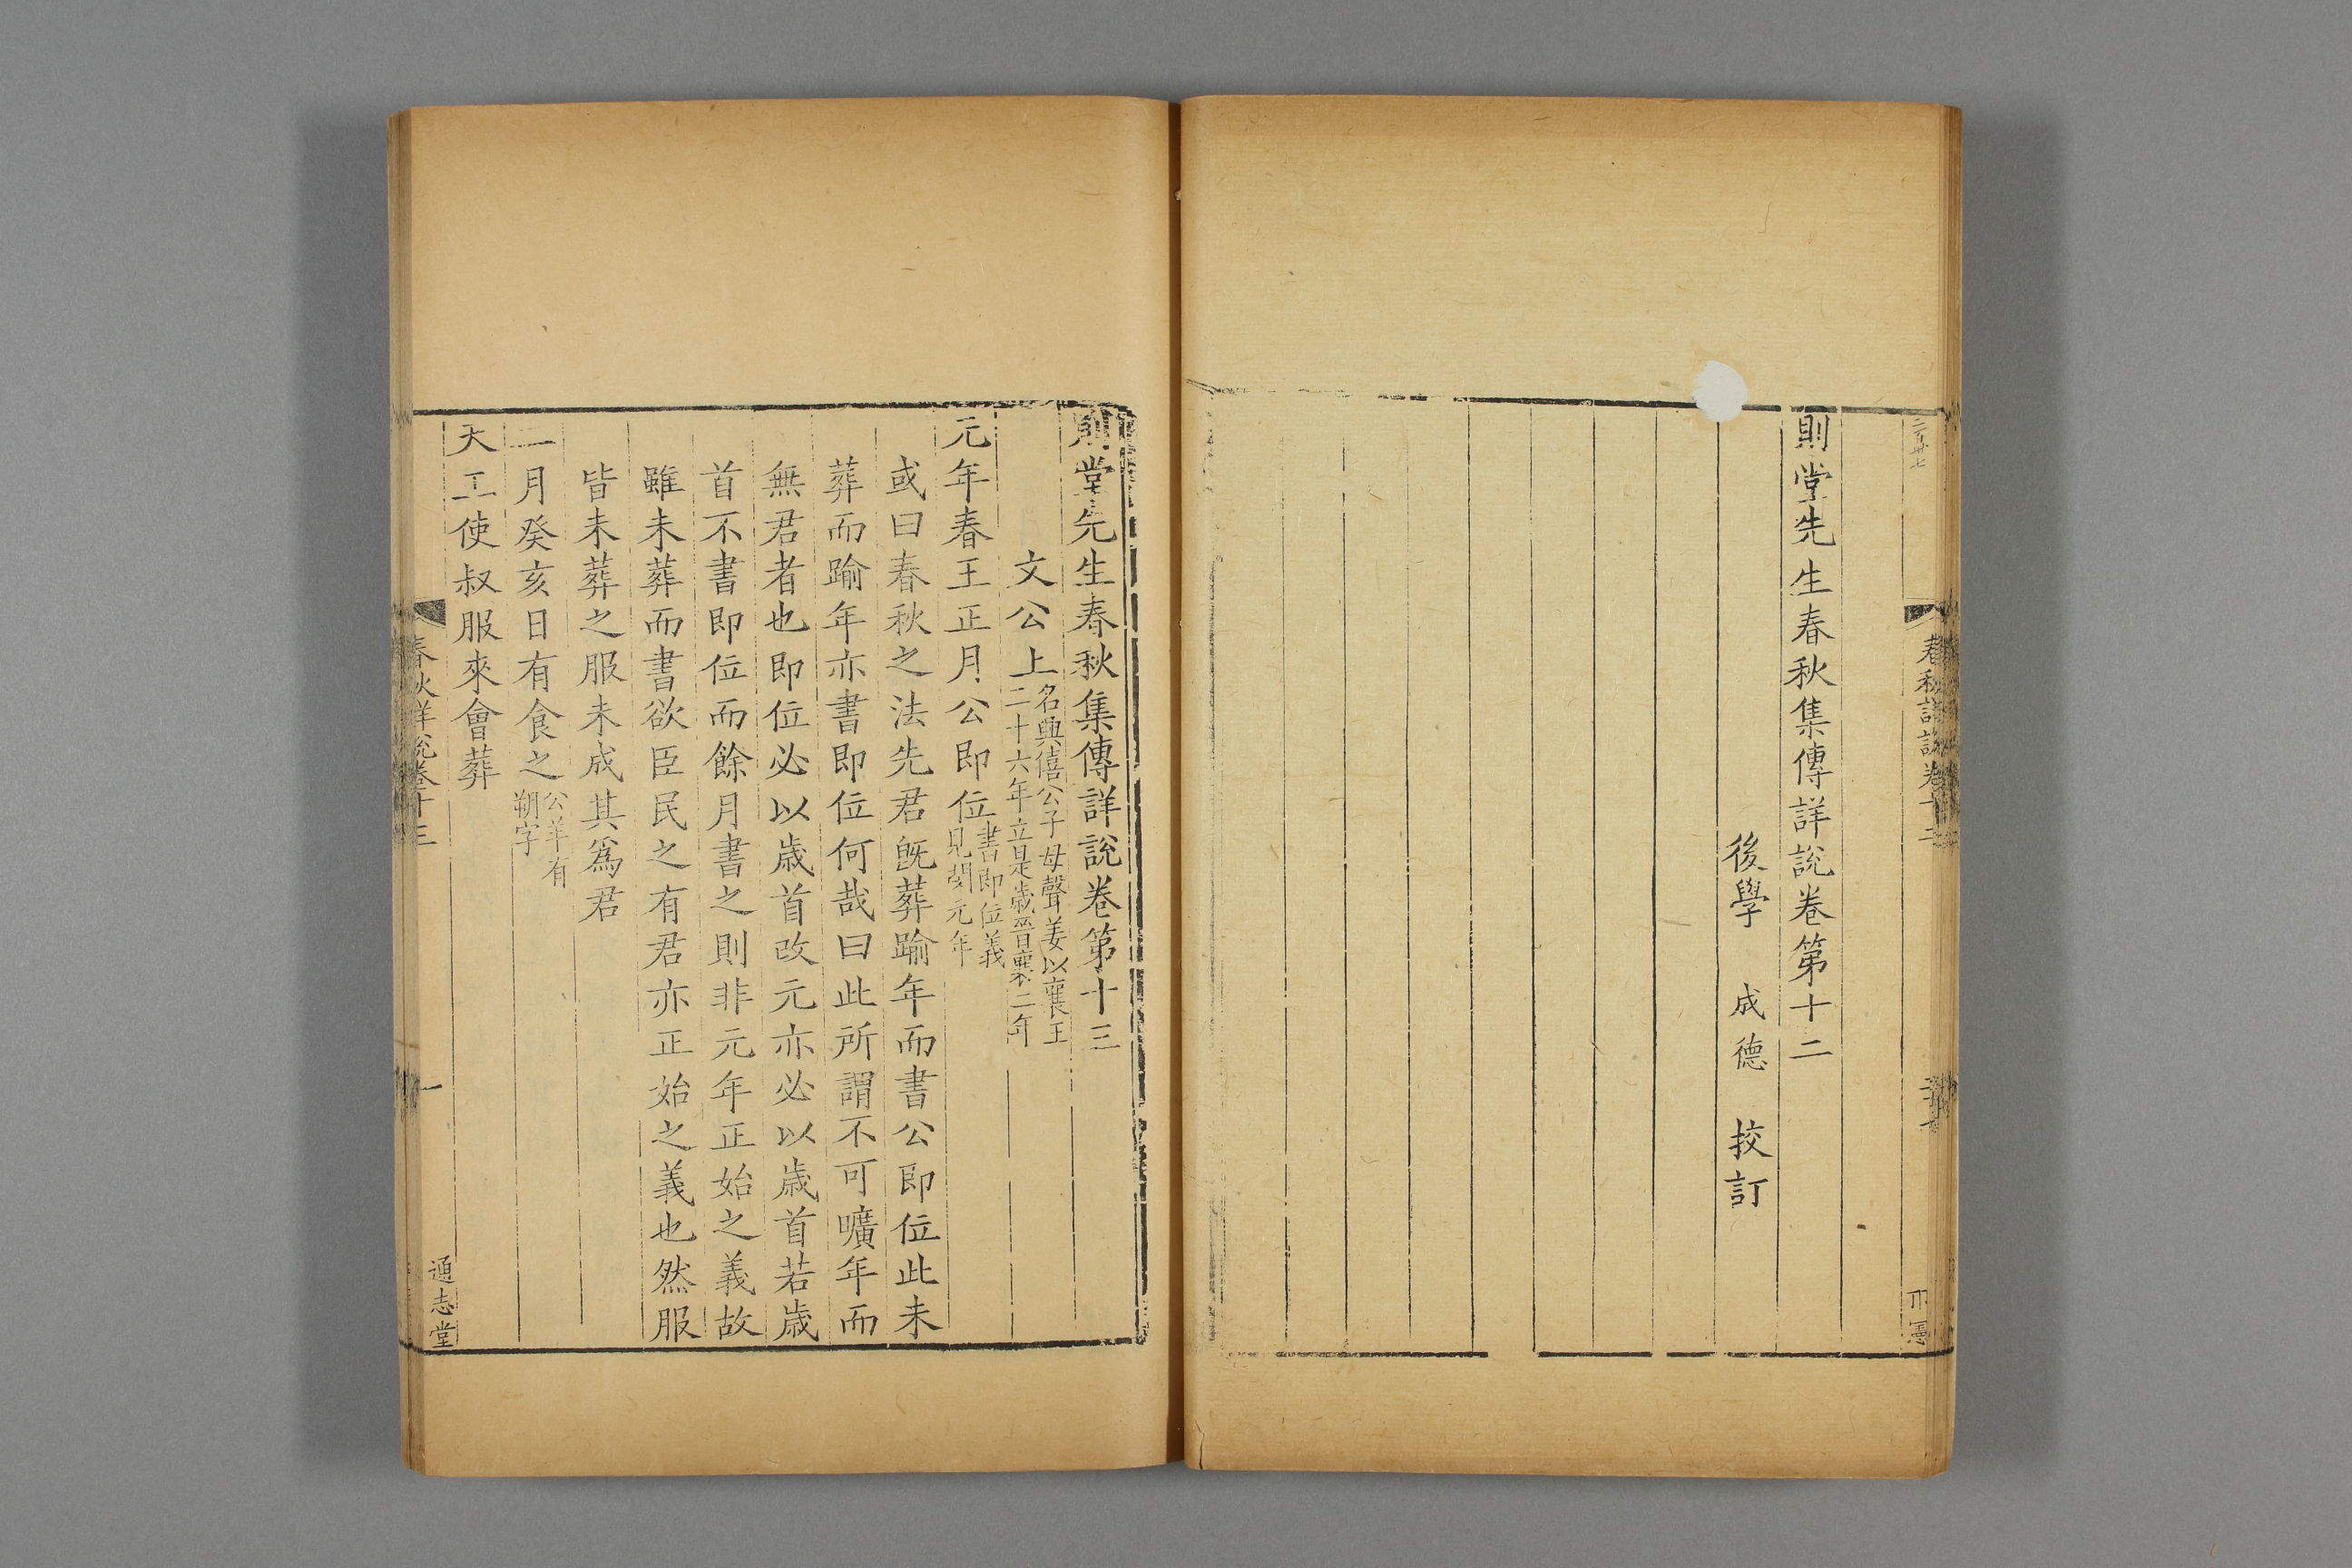 則堂先生春秋集傳詳說卷第十二
後學 成德 挍訂
則堂先生春秋集傳詳說卷第十三
文公上名興僖公子母聲姜以襄王
二十六年立是歲晉襄二年
元年春王正月公即位書即位義
見閔元年
或曰春秋之法先君旣葬踰年而書公即位此未
葬而踰年亦書即位何哉曰此所謂不可曠年而
無君者也即位必以歲首改元亦必以歲首若歲
首不書即位而餘月書之則非元年正始之義故
雖未葬而書欲臣民之有君亦正始之義也然服
皆未葬之服未成其爲君
二月癸亥日有食之公羊有
朔字
天王使叔服來會葬
春秋詳說卷十三
一
通志堂